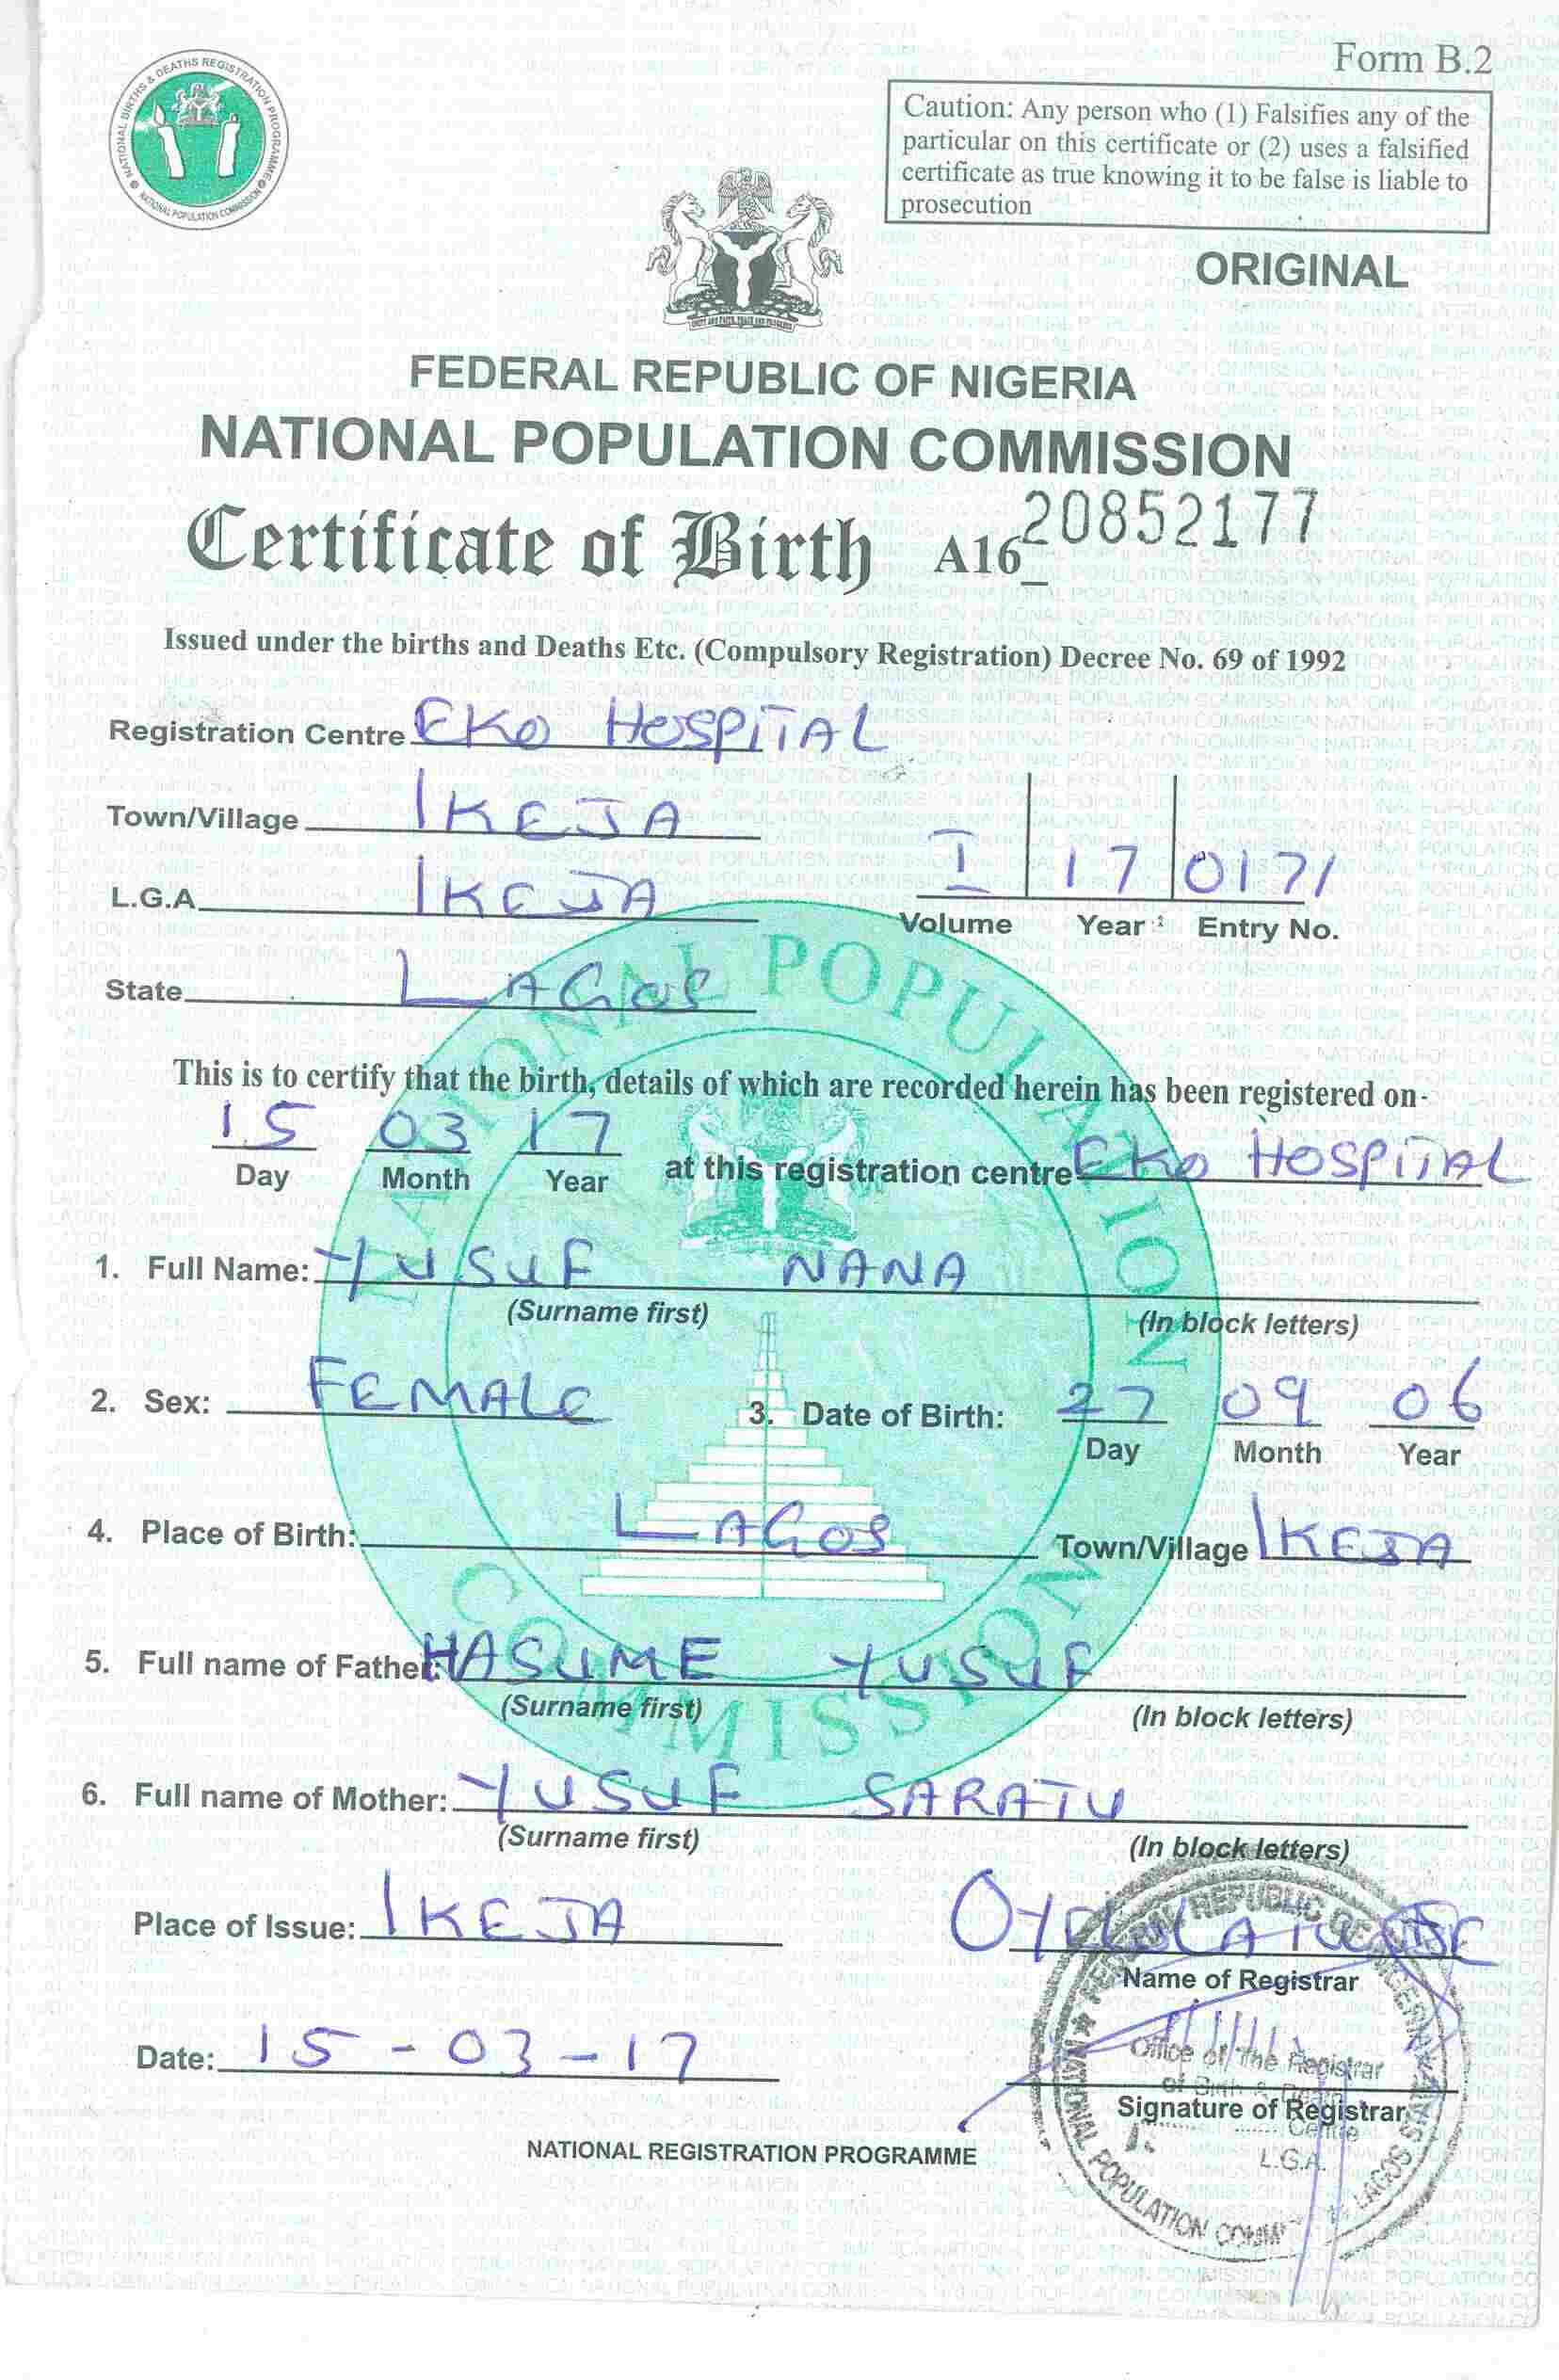 NATIONAL BIRTHS & DEATHS REGISTRATION PROGRAMME
NATIONAL POPULATION COMMISSION
Form B.2
Caution: Any person who (1) Falsifies any of the
particular on this certificate or (2) uses a falsified
certificate as true knowing it to be false is liable to
prosecution
ORIGINAL
FEDERAL REPUBLIC OF NIGERIA
NATIONAL POPULATION COMMISSION
Certificate of Birth A16_ 20852177
Issued under the births and Deaths Etc. (Compulsory Registration) Decree No. 69 of 1992
Registration Centre EKO HOSPITAL
Town/Village IKEJA
L.G.A IKEJA
I 17 0171
Volume Year Entry No.
State LAGOS
NATIONAL POPULATION COMMISSION
This is to certify that the birth, details of which are recorded herein has been registered on-
15 03 17
Day Month Year at this registration centre EKO HOSPITAL
1. Full Name: YUSUF NANA
(Surname first) (In block letters)
2. Sex: FEMALE 3. Date of Birth: 27 09 06
Day Month Year
4. Place of Birth: LAGOS Town/Village IKEJA
5. Full name of Father: HASUME YUSUF
(Surname first) (In block letters)
6. Full name of Mother: YUSUF SARATU
(Surname first) (In block letters)
Place of Issue: IKEJA
Name of Registrar
Date: 15-03-17
Office of the Registrar
of Birth &
Signature of Registrar
Centre
L.G.A.
FEDERAL REPUBLIC OF NIGERIA
NATIONAL POPULATION
LAGOS STATE
NATIONAL REGISTRATION PROGRAMME